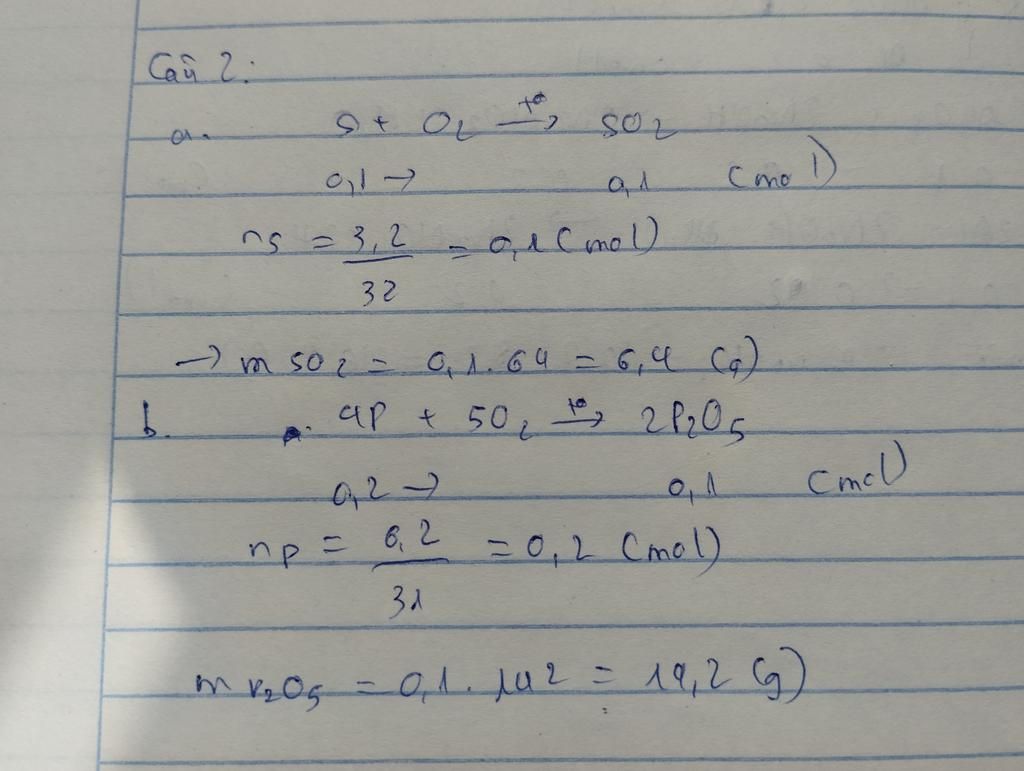 Câu 2:
a. S + O2 t° → SO2
0,1 → 0,1 (mol)
nS = 3,2 / 32 = 0,1 (mol)
→ mSO2 = 0,1.64 = 6,4 (g)
b. 4P + 5O2 t° → 2P2O5
0,2 → 0,1 (mol)
nP = 6,2 / 31 = 0,2 (mol)
mP2O5 = 0,1.142 = 14,2 (g)